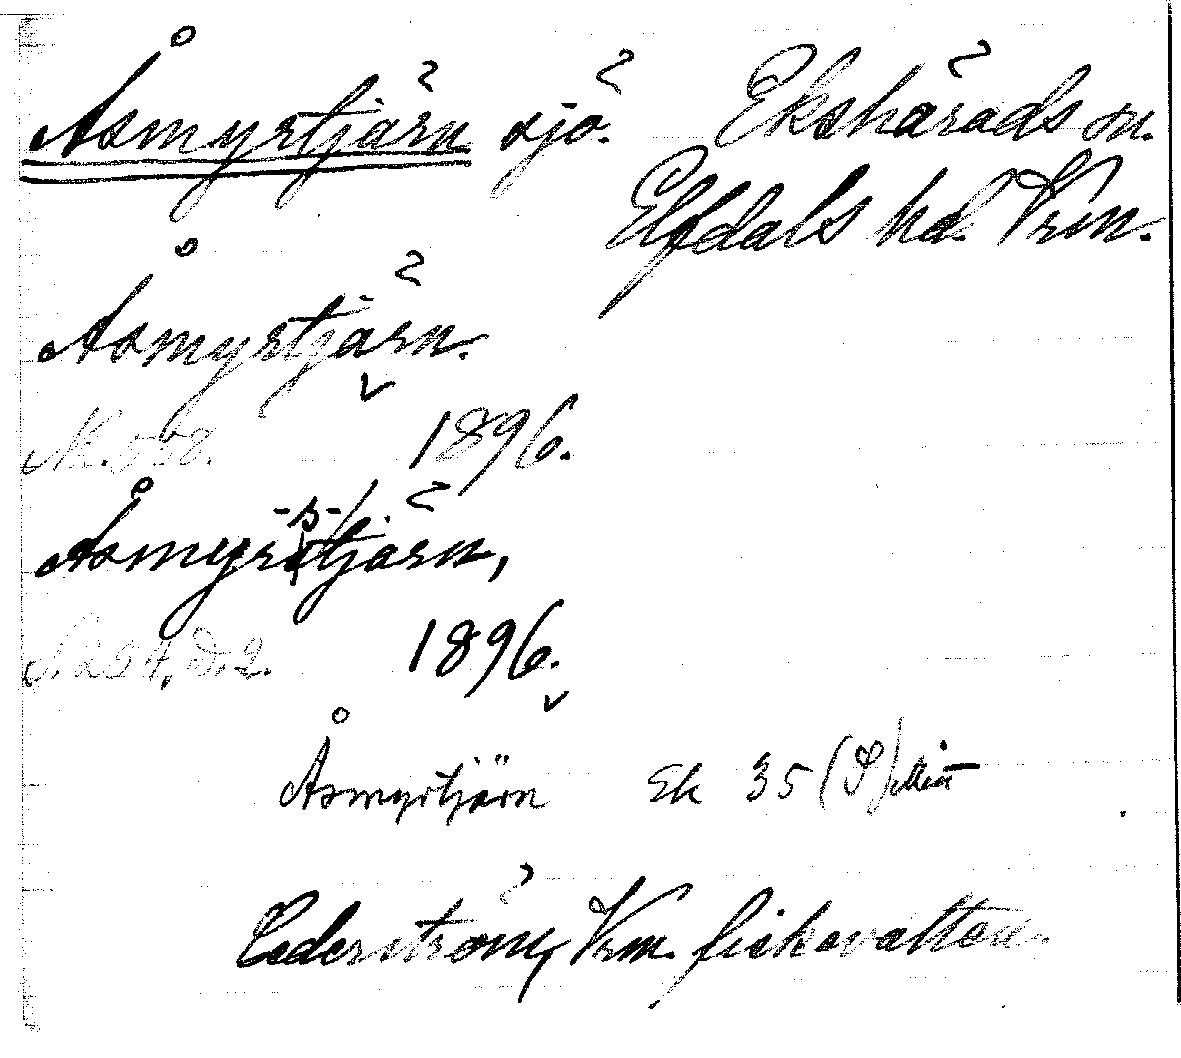 Åsmyrtjärn sjö. Ekshärads sn.
Elfdals hd. Vrm.
Åsmyrtjärn.
1896.
-s-
Åsmyrstjärn,
1896.
Åsmyrtjärn Ek 35 (S)
Cederström, Vrm. fiskevatten.